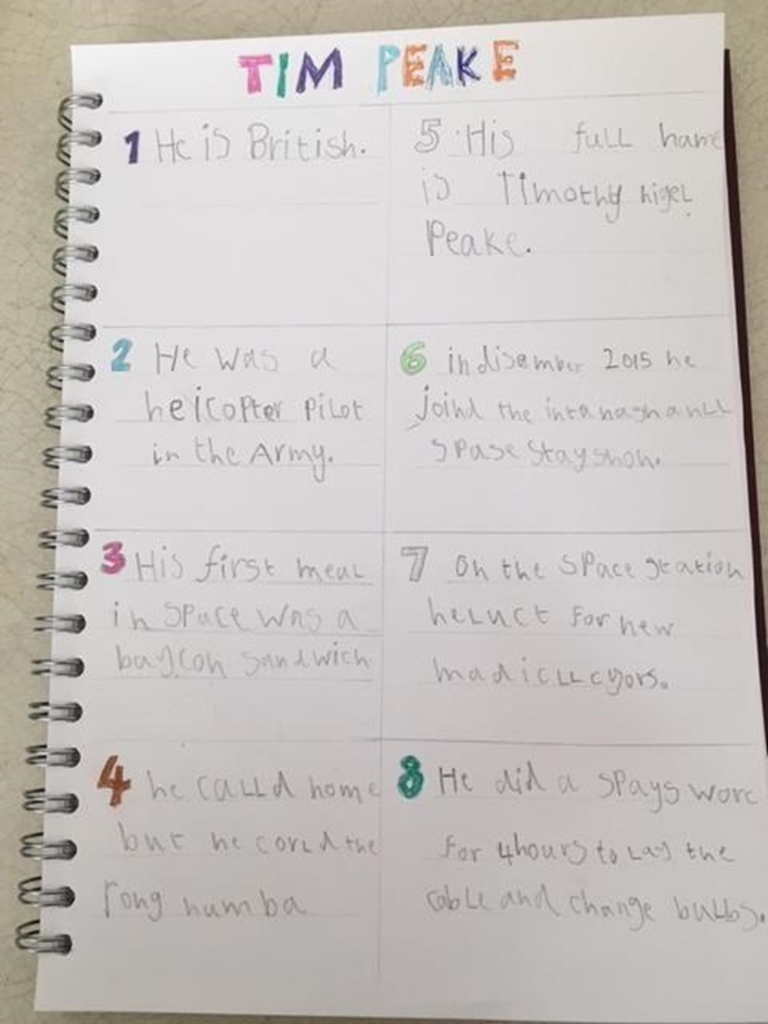 TIM PEAKE
1 He is British.
2 He was a
heicopter pilot
in the Army.
3 His first meal
in space was a
baycon sandwich
4 he calld home
but he corld the
rong numba
5 His full name
is Timothy nigel
Peake.
6 in disember 2015 he
joind the intanashanll
spase stayshon.
7 on the space station
he luct for new
madicll cyors.
8 He did a spays worc
for 4 hours to lay the
cable and change bulbs.